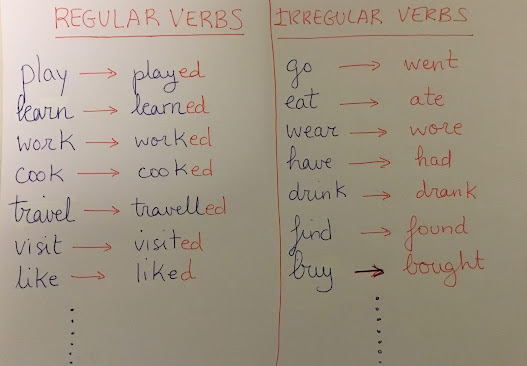 REGULAR VERBS
play → played
learn → learned
work → worked
cook → cooked
travel → travelled
visit → visited
like → liked
IRREGULAR VERBS
go → went
eat → ate
wear → wore
have → had
drink → drank
find → found
buy → bought